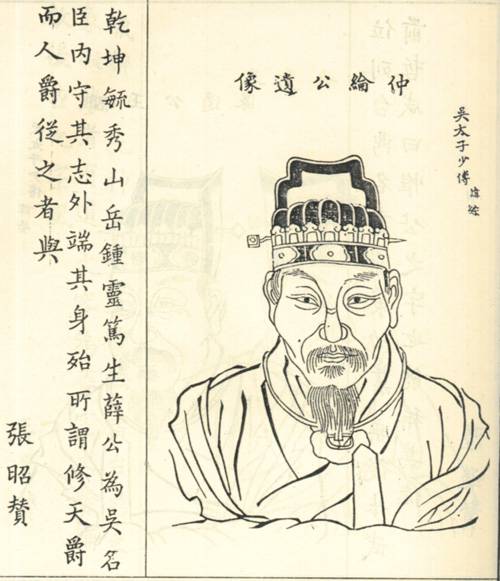 吳太子少傅
仲綸公遺像
乾坤毓秀山岳鍾靈篤生薛公為吳名
臣內守其志外端其身殆所謂修天爵
而人爵從之者與
張昭賛